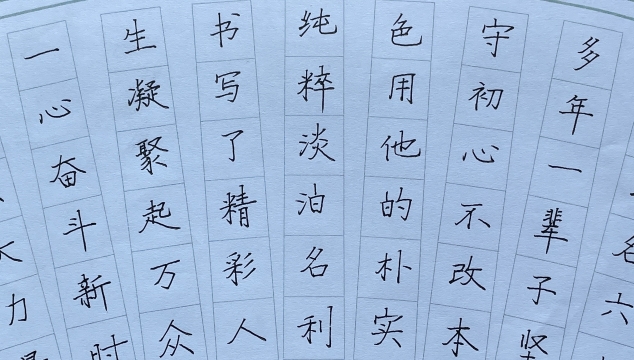 名六
多年一辈子坚
守初心不改本
色用他的朴实
纯粹淡泊名利
书写了精彩人
生凝聚起万众
一心奋斗新时
力